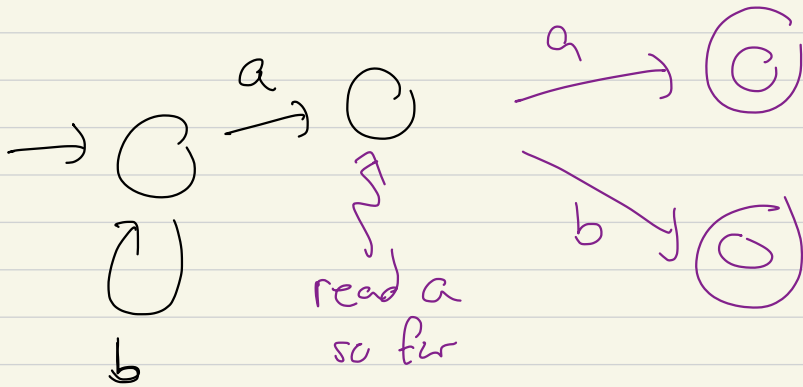 a
a
b
b
read a
so far